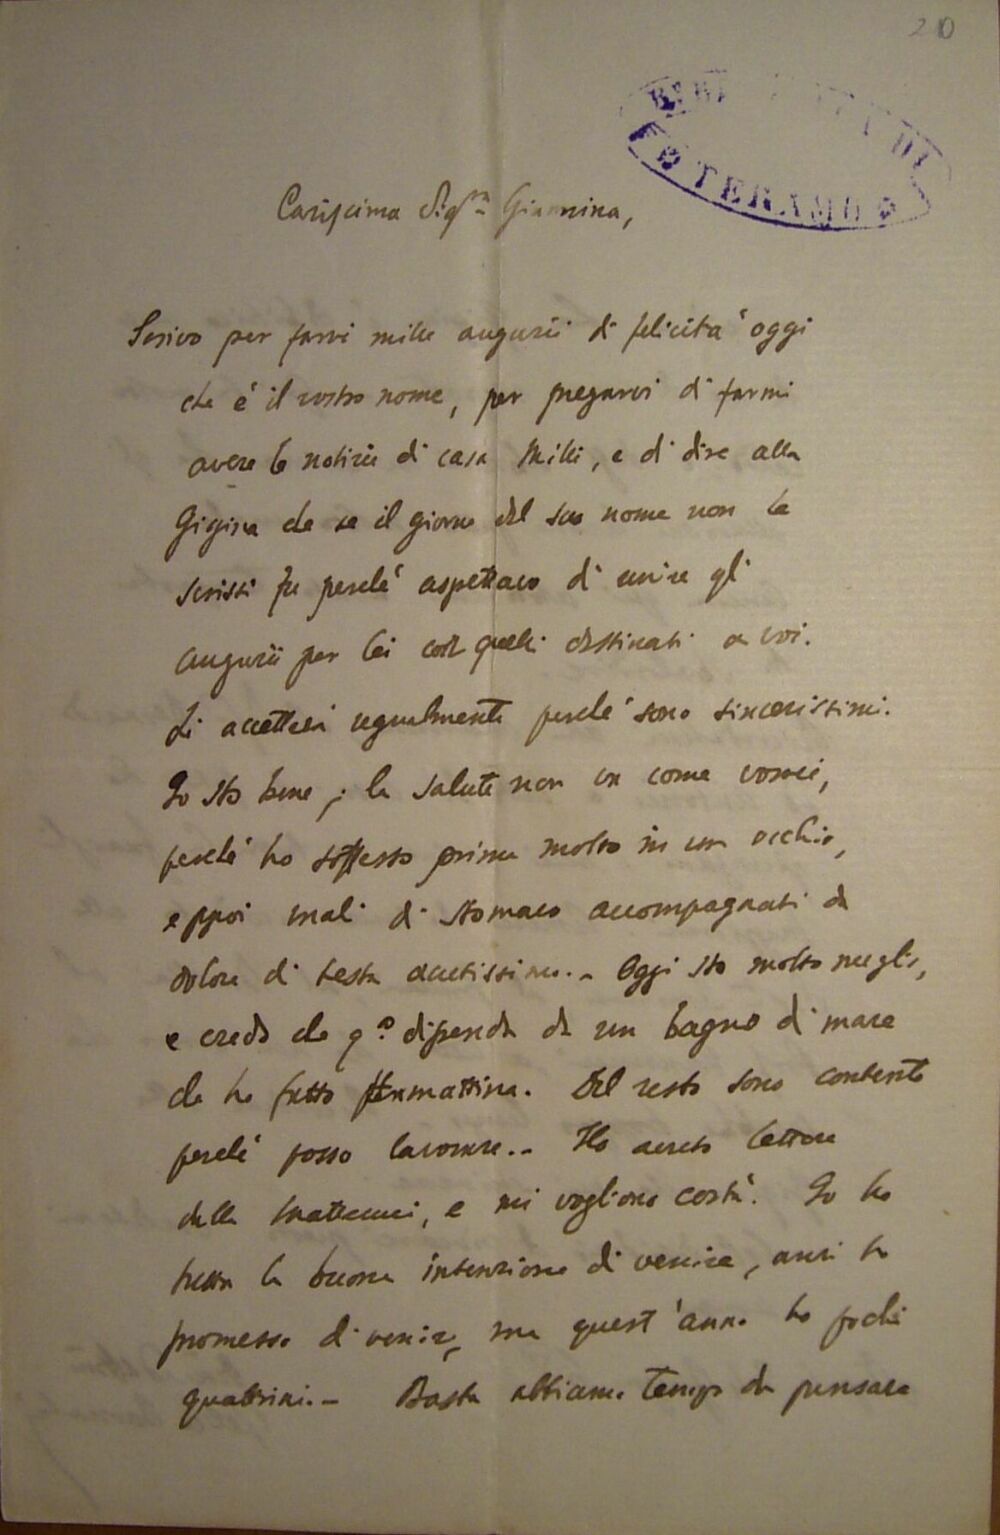 210
TERAMO
Carissima Sig.ra Giannina,
Scrivo per farvi mille augurii di felicità oggi
che è il vostro nome, per pregarvi di farmi
avere le notizie di casa Milli, e di dire alla
Gigina che se il giorno del suo nome non le
scrissi fu perché aspettavo di unire gli
augurii per lei con quelli destinati a voi.
Li accetterà egualmente perché sono sincerissimi.
Io sto bene; la salute non va come vorrei,
perché ho sofferto prima molto in un occhio,
eppoi mali di stomaco accompagnati da
dolore di testa acutissimo. - Oggi sto molto meglio,
e credo che q.to dipenda da un bagno di mare
che ho fatto stamattina. Del resto sono contento
perché posso lavorare. - Ho avuto lettere
della Matteucci, e mi vogliono costà. Io ho
tutta la buona intenzione di venire, anzi ho
promesso di venire, ma quest'anno ho pochi
quattrini. - Basta abbiamo tempo da pensare